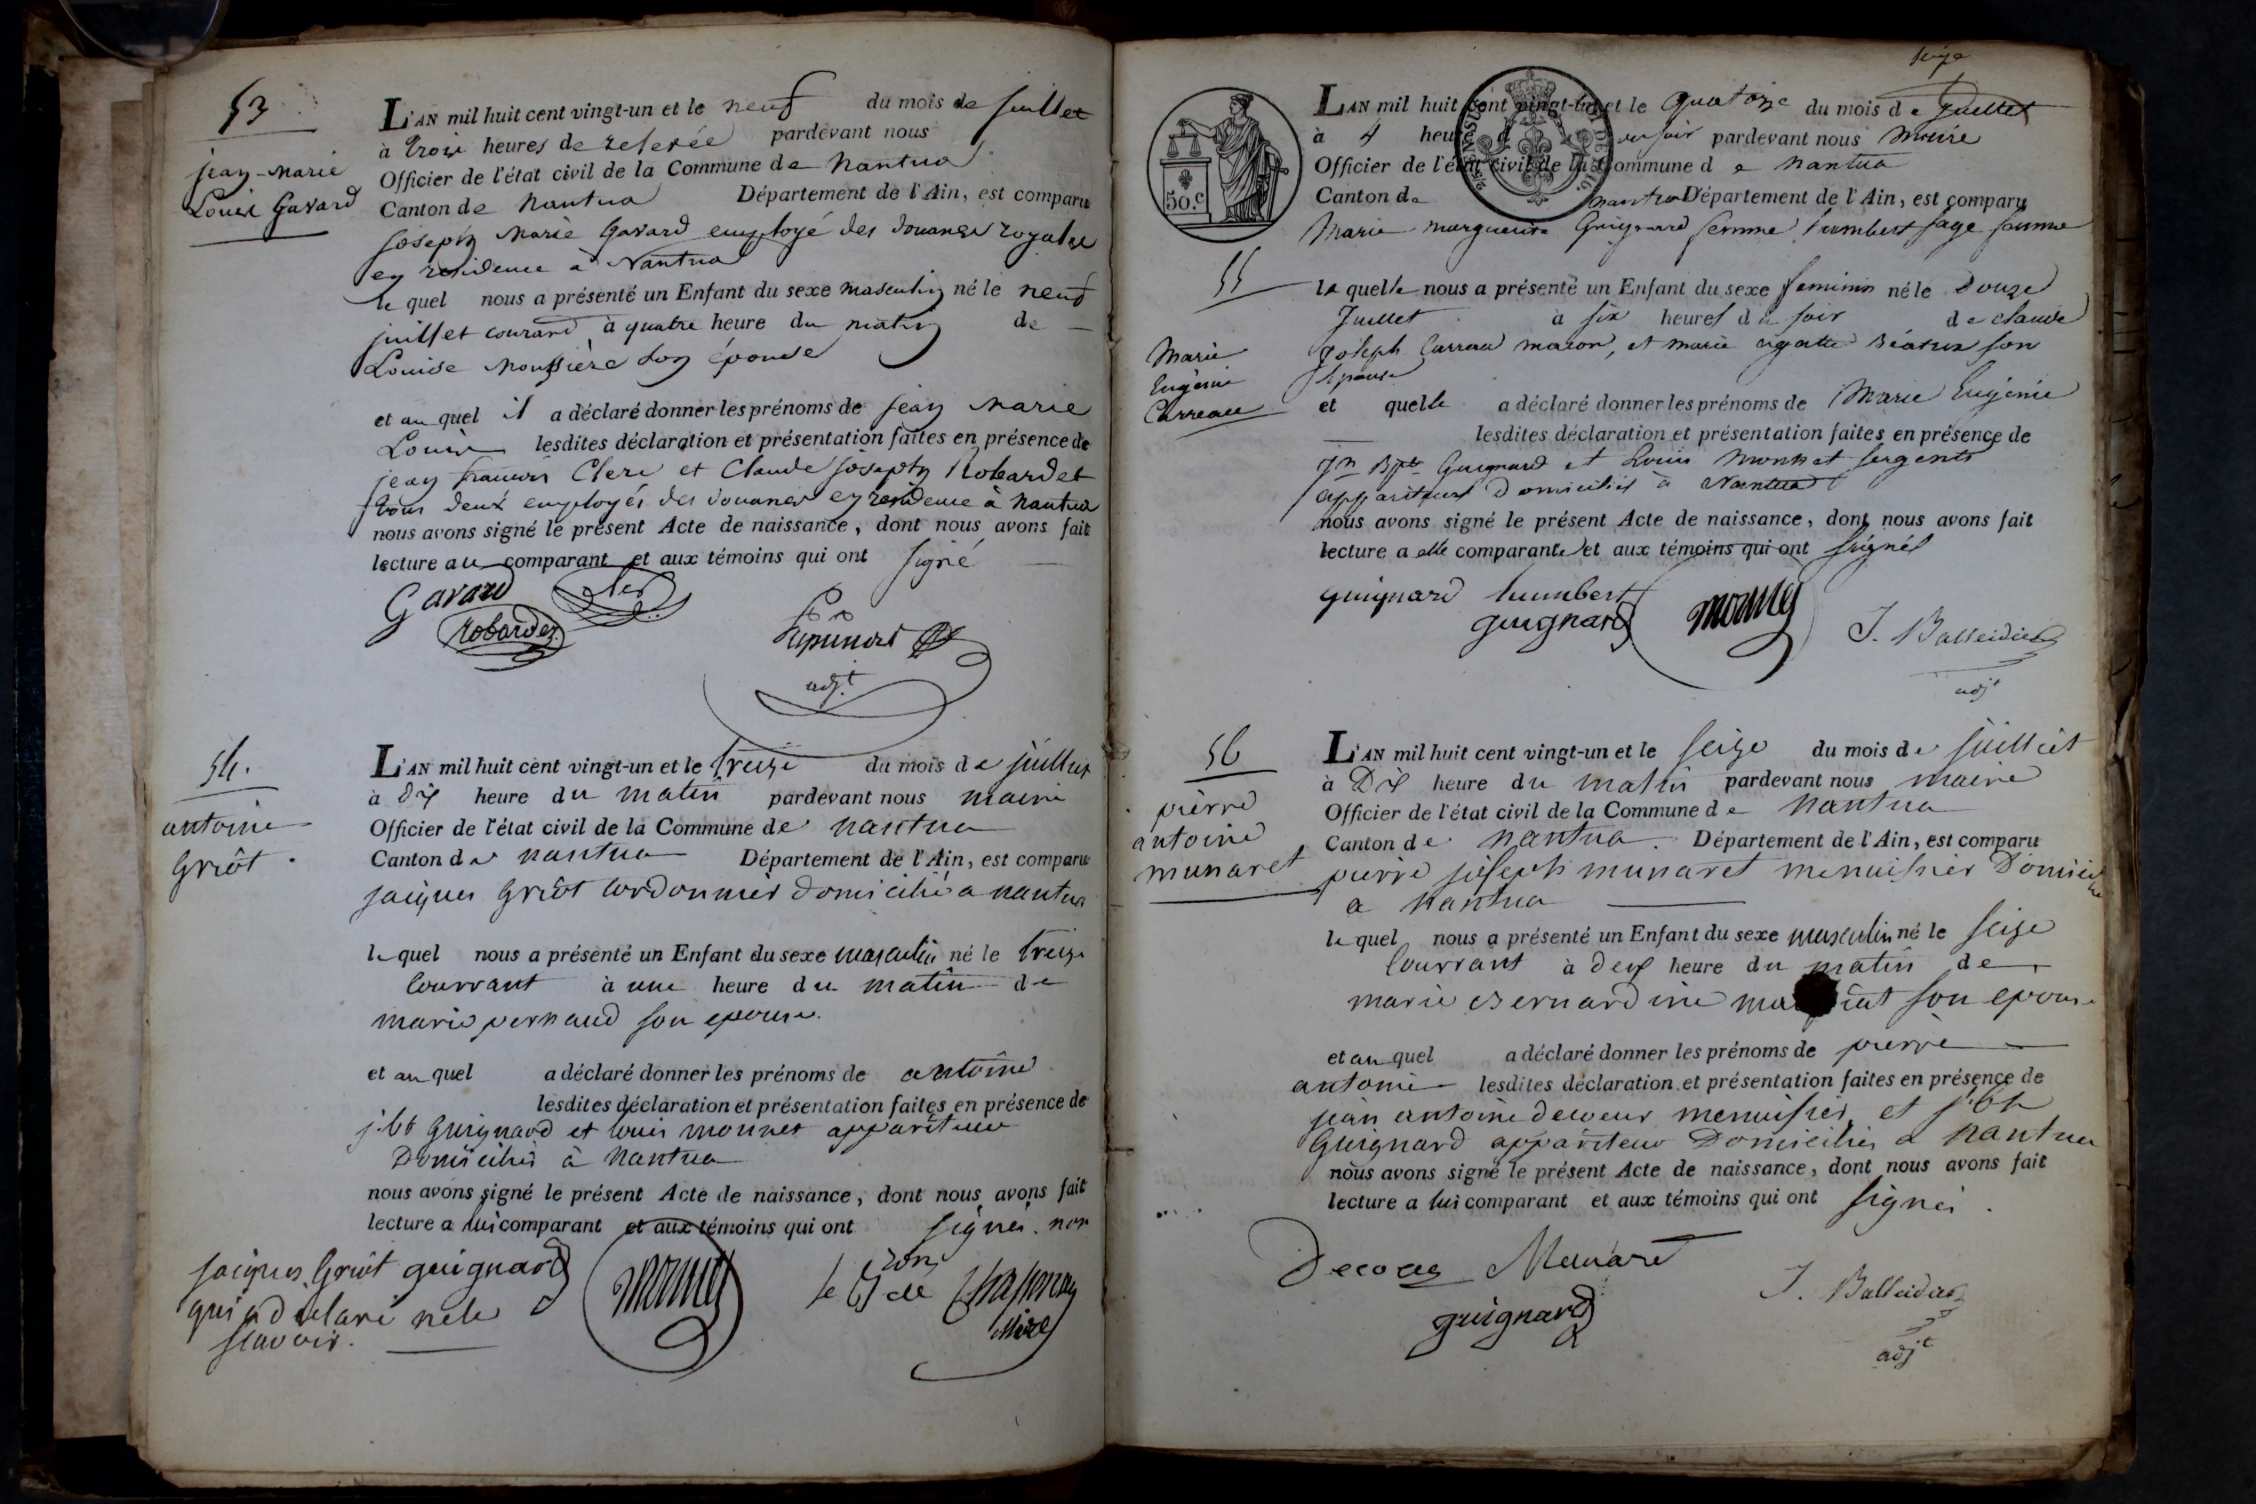 53
jean-Marie
Louis Gavard
L'AN mil huit cent vingt-un et le neuf du mois de juillet
à trois heures de relevée pardevant nous
Officier de l'état civil de la Commune de Nantua
Canton de Nantua Département de l'Ain, est comparu
joseph Marie Gavard employé des douanes royales
en residence à Nantua
le quel nous a présenté un Enfant du sexe masculin né le neuf
juillet courand à quatre heure du matin de
Louise son épouse
et au quel il a déclaré donner les prénoms de jean Marie
Louis lesdites déclaration et présentation faites en présence de
jean francois Clerc et Claude joseph Robardet
tous deux employés des douanes en residence à Nantua
nous avons signé le présent Acte de naissance, dont nous avons fait
lecture au comparant et aux témoins qui ont signé
Gavard
Robardet
adj.t
54.
antoine
Griôt.
L'AN mil huit cent vingt-un et le treize du mois de juillet
à dix heure du matin pardevant nous maire
Officier de l'état civil de la Commune de nantua
Canton de nantua Département de l'Ain, est comparu
jacques Griôt Cordonnier domicilié a nantua
le quel nous a présenté un Enfant du sexe masculin né le treize
Courrant à une heure du matin de
marie pernaud son epouse.
et au quel a déclaré donner les prénoms de antoine
lesdites déclaration et présentation faites en présence de
j. bt Guignard et louis monnet appariteur
Domiciliés à Nantua
nous avons signé le présent Acte de naissance, dont nous avons fait
lecture a lui comparant et aux témoins qui ont signés. non
jacques Griôt guignard
qui a declaré ne le
scavoir.
monnet
le Bon de
Maire
seize
50.c
L'AN mil huit cent vingt-un et le quatorze du mois de Juillet
à 4 heures du soir pardevant nous Maire
Officier de l'état civil de la Commune de Nantua
Canton de nantua Département de l'Ain, est comparu
Marie marguerite Guignard femme humbert sage femme
55
Marie
Eugénie
Carreau
la quelle nous a présenté un Enfant du sexe feminin né le Douze
Juillet à six heures du soir de claude
Joseph Carreau macon, et marie agathe Béatrix son
Epouse
et quelle a déclaré donner les prénoms de Marie Eugénie
lesdites déclaration et présentation faites en présence de
Jn Bpte Guignard et Louis Monnet sergents
appariteurs Domiciliés à Nantua
nous avons signé le présent Acte de naissance, dont nous avons fait
lecture a elle comparante et aux témoins qui ont signés
guignard humbert
guignard monnet
J. Balleidier
adjt
56
pierre
antoine
munaret
L'AN mil huit cent vingt-un et le seize du mois de juillet
à Dix heure du matin pardevant nous maire
Officier de l'état civil de la Commune de Nantua
Canton de Nantua. Département de l'Ain, est comparu
pierre joseph munaret menuisier Domicilié
a Nantua
le quel nous a présenté un Enfant du sexe masculin né le seize
Courrant à deux heure du matin de
marie Bernardine son epouse
et au quel a déclaré donner les prénoms de pierre
antoine lesdites déclaration et présentation faites en présence de
jean antoine decoeur menuisier, et j. bt
Guignard appariteur Domiciliés a Nantua
nous avons signé le présent Acte de naissance, dont nous avons fait
lecture a lui comparant et aux témoins qui ont signés.
Munaret
guignard
J. Balleidier
adjt